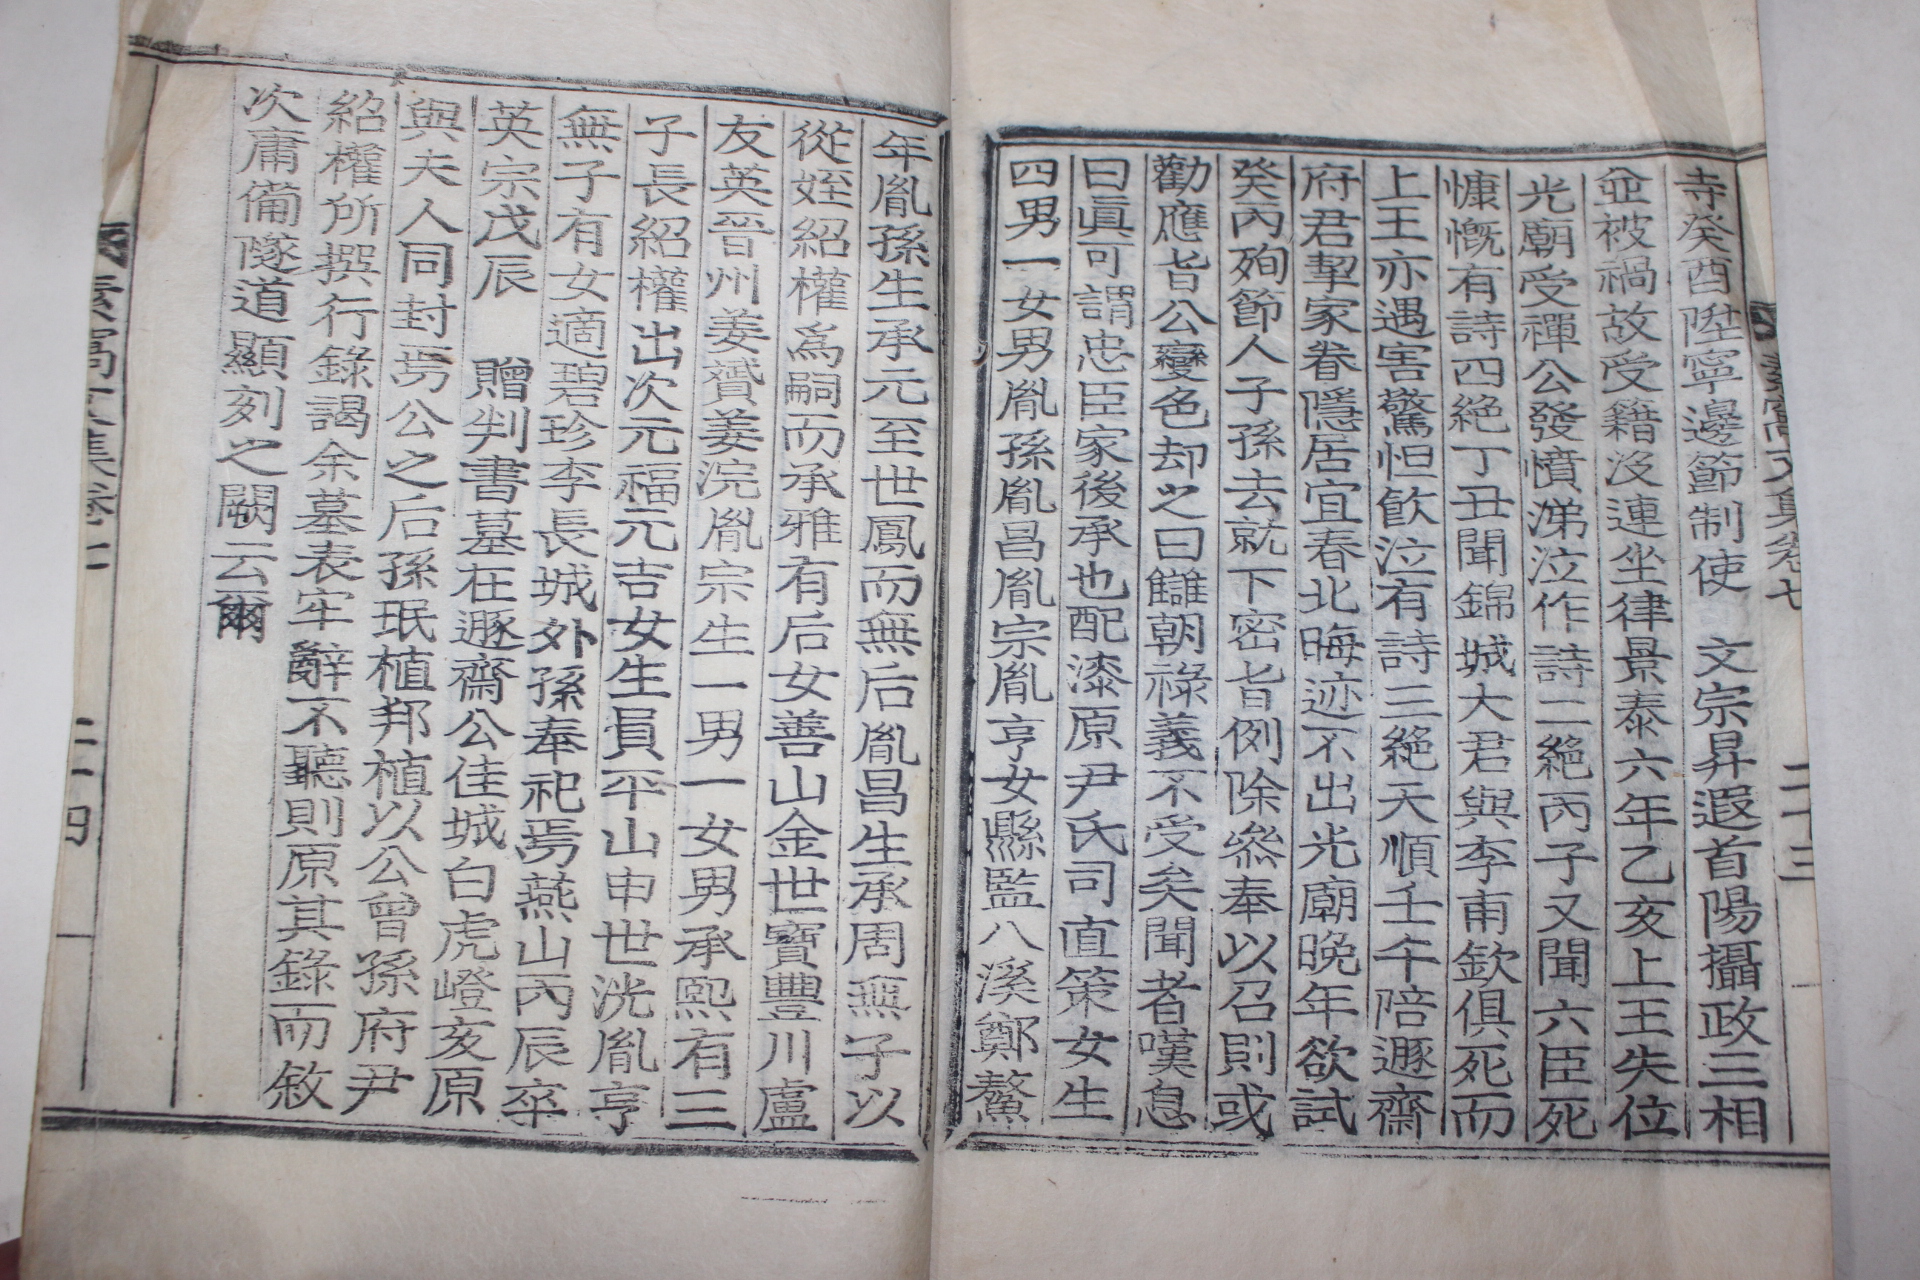 寺癸酉陞寧邊節制使 文宗昇遐首陽攝政三相
並被禍故受籍沒連坐律景泰六年乙亥上王失位
光廟受禪公發憤涕泣作詩二絶丙子又聞六臣死
慷慨有詩四絶丁丑聞錦城大君與李甫欽俱死而
上王亦遇害驚怛飮泣有詩三絶天順壬午陪遯齋
府君挈家眷隱居宜春北晦迹不出光廟晚年欲試
癸丙殉節人子孫去就下密旨例除叅奉以召則或
勸應旨公變色却之曰讎朝祿義不受矣聞者嘆息
曰眞可謂忠臣家後承也配漆原尹氏司直策女生
四男一女男胤孫胤昌胤宗胤亨女縣監八溪鄭鰲
年胤孫生承元至世鳳而無后胤昌生承周無子以
從姪紹權爲嗣而承雅有后女善山金世寶豐川盧
友英晉州姜贇姜浣胤宗生一男一女男承熙有三
子長紹權出次元福元吉女生員平山申世洸胤亨
無子有女適碧珍李長城外孫奉祀焉燕山丙辰卒
英宗戊辰 贈判書墓在遯齋公佳城白虎嶝亥原
與夫人同封焉公之后孫珉植邦植以公曾孫府尹
紹權所撰行錄謁余墓表牢辭不聽則原其錄而敘
次庸備隧道顯刻之闕云爾
文集卷七
二十三
二十四